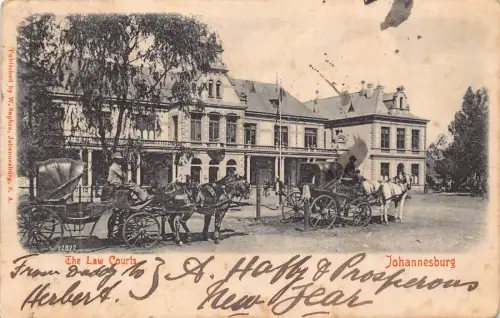 Published by W. Saphra, Johannesburg, S. A.
The Law Courts
Johannesburg
From Daddy to } A Happy & Prosperous
Herbert. New Year